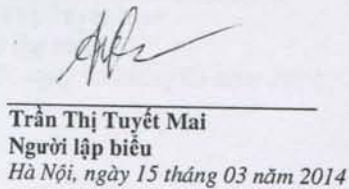 Trần Thị Tuyết Mai
Người lập biểu
Hà Nội, ngày 15 tháng 03 năm 2014